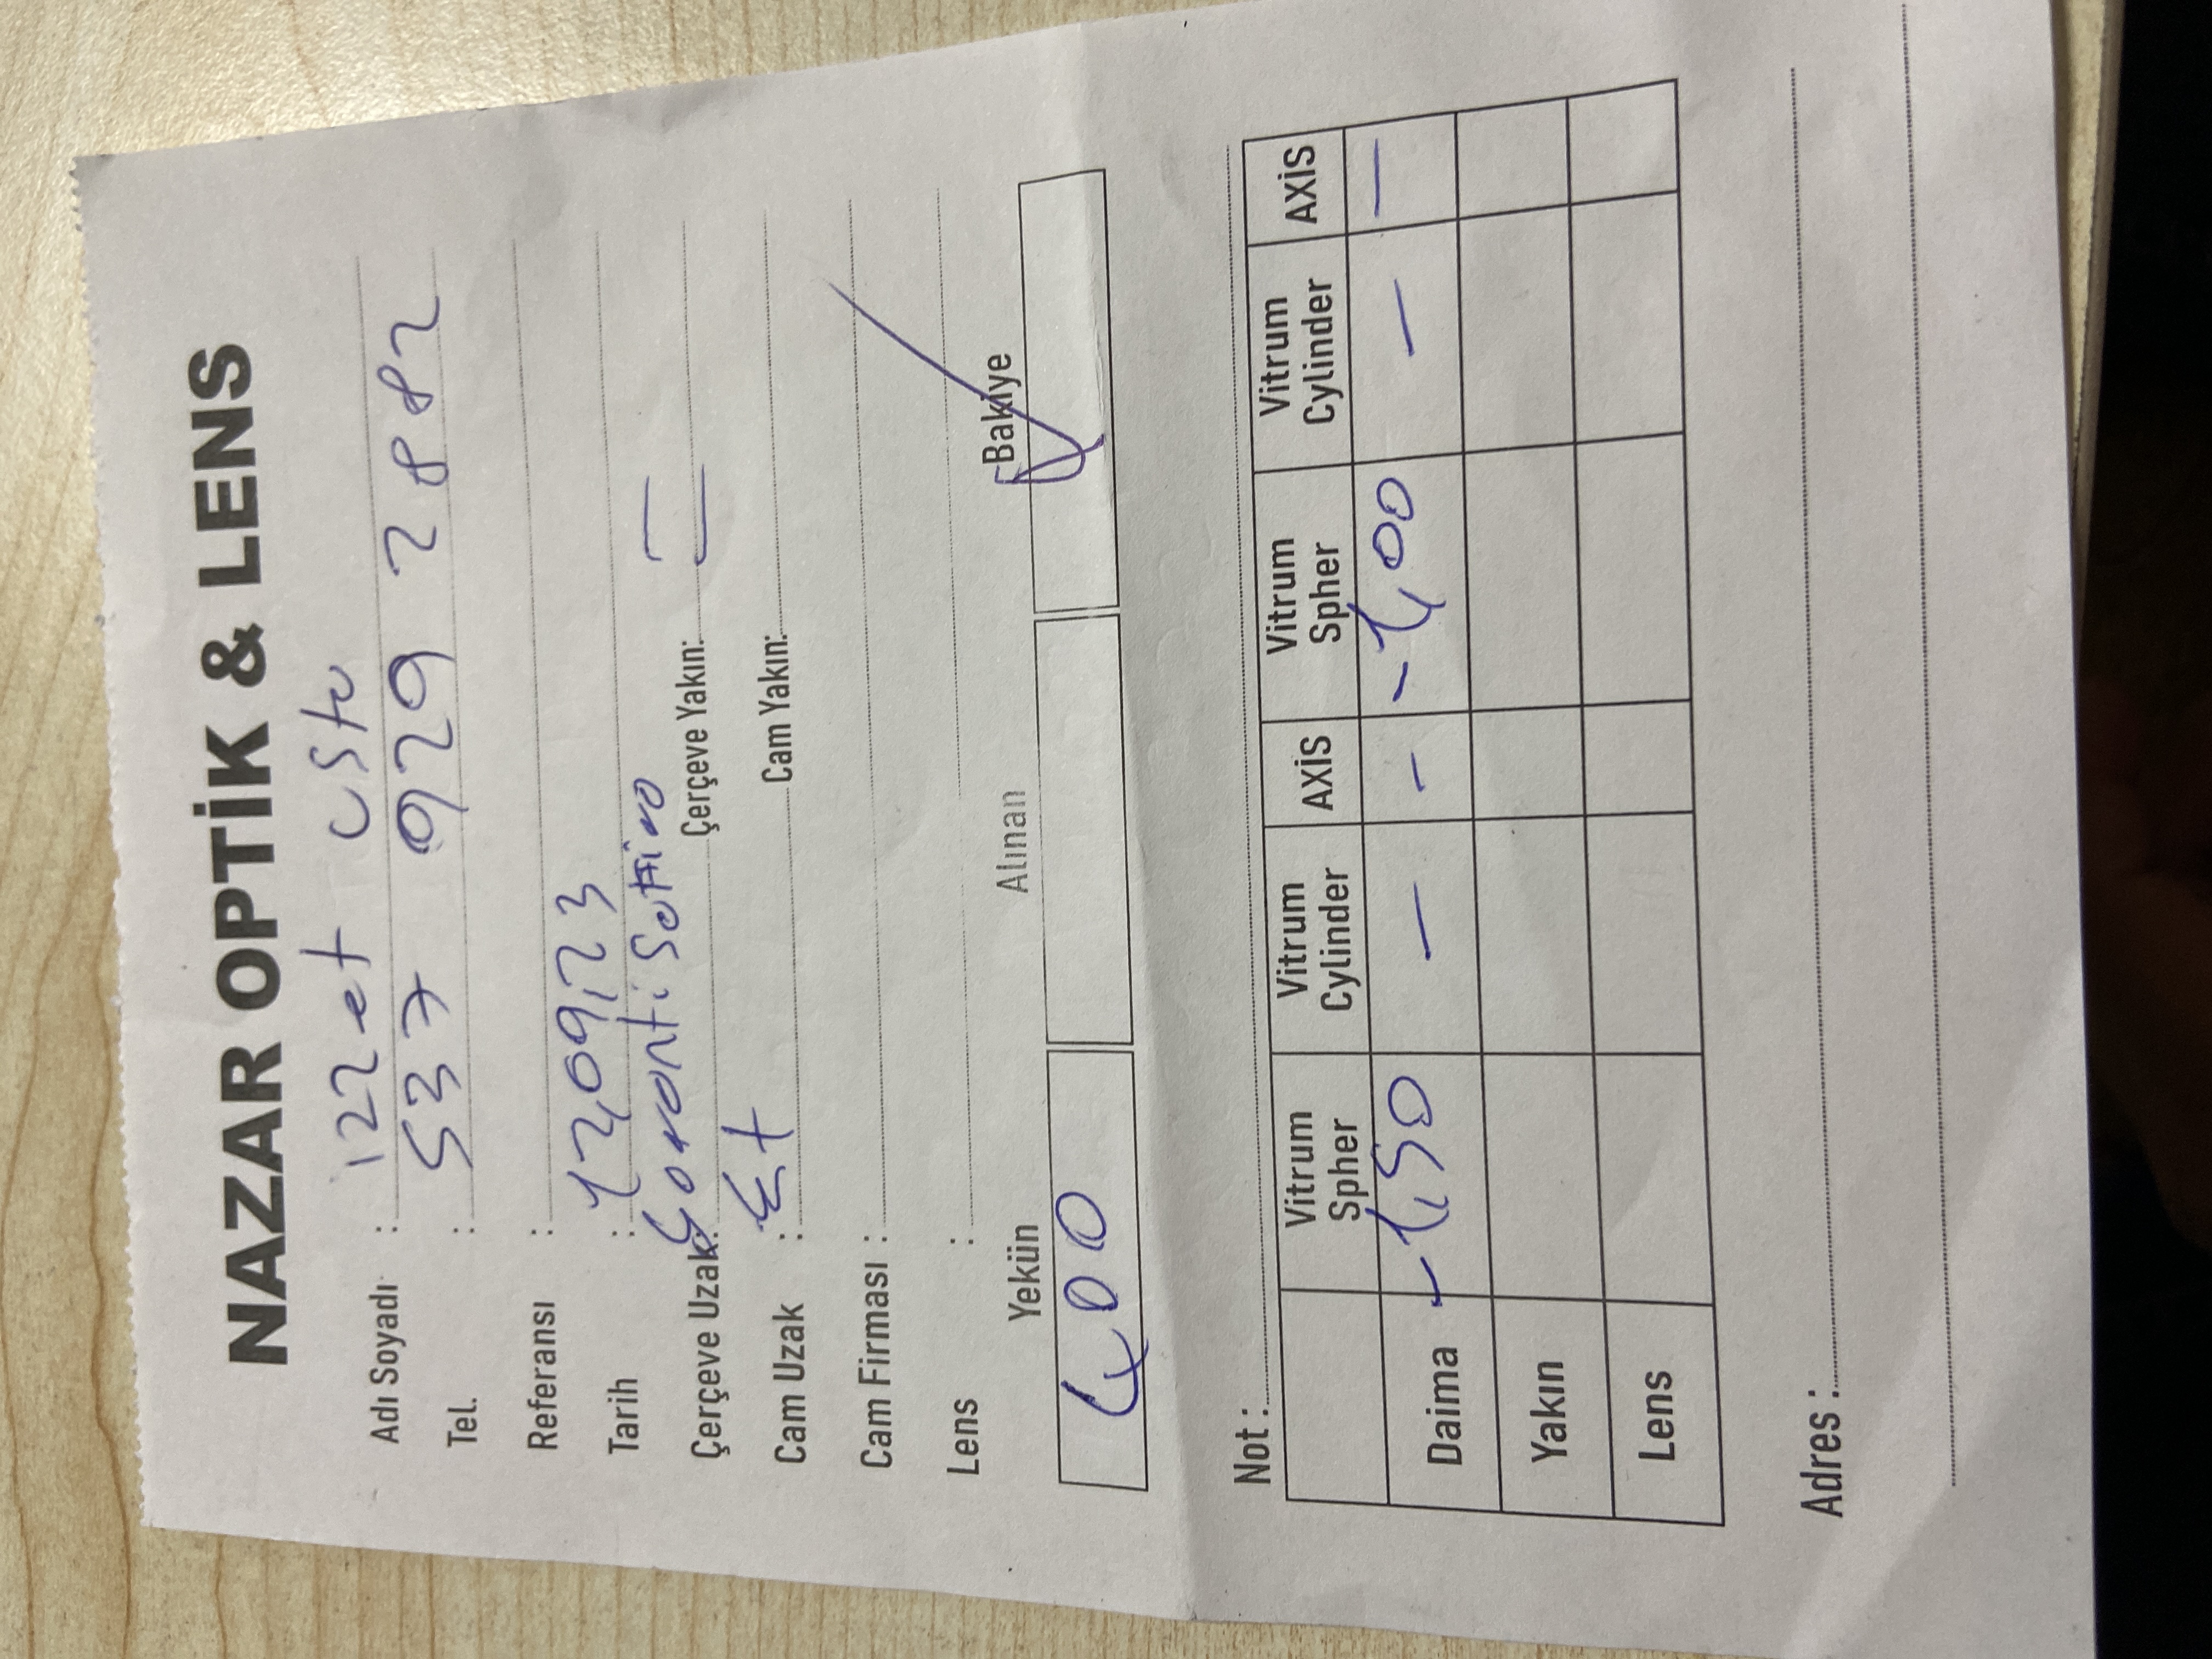 NAZAR OPTİK & LENS
Adı Soyadı : izzet usta
Tel. : 537 929 2882
Referansı :
Tarih : 12,09,23
Çerçeve Uzak: Çerçeve Yakın:
Cam Uzak : Cam Yakın:
Cam Firması :
Lens :
Yekün Alınan Bakiye
400
Not :
Vitrum Spher Vitrum Cylinder AXİS Vitrum Spher Vitrum Cylinder AXİS
Daima -1,50 - - -1,00 - -
Yakın
Lens
Adres :